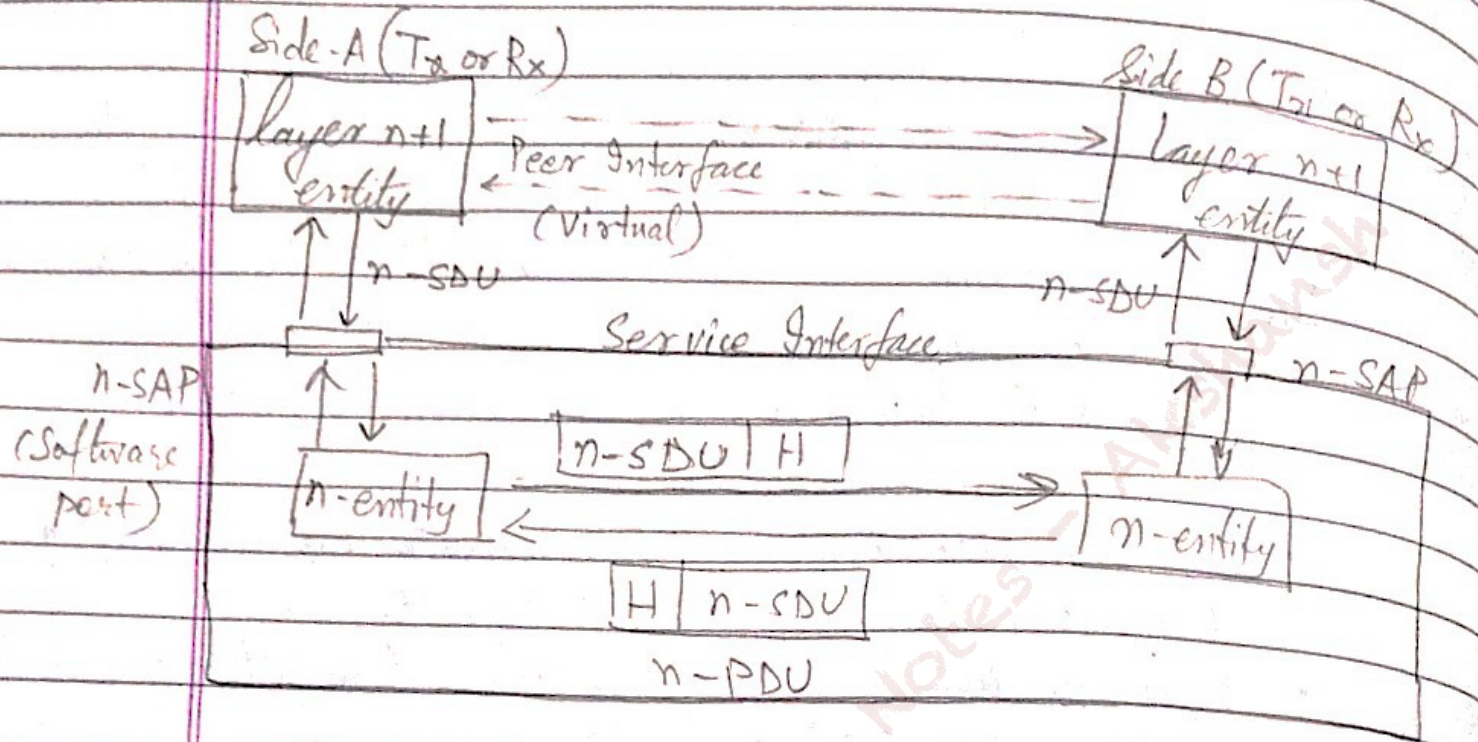 Side-A (Tx or Rx)
Side B (Tx or Rx)
layer n+1
entity
Peer Interface
(Virtual)
Layer n+1
entity
n-SDU
n-SDU
Service Interface
n-SAP
(Software
port)
n-SAP
n-SDU | H
n-entity
n-entity
H | n-SDU
n-PDU
Notes - Akshansh